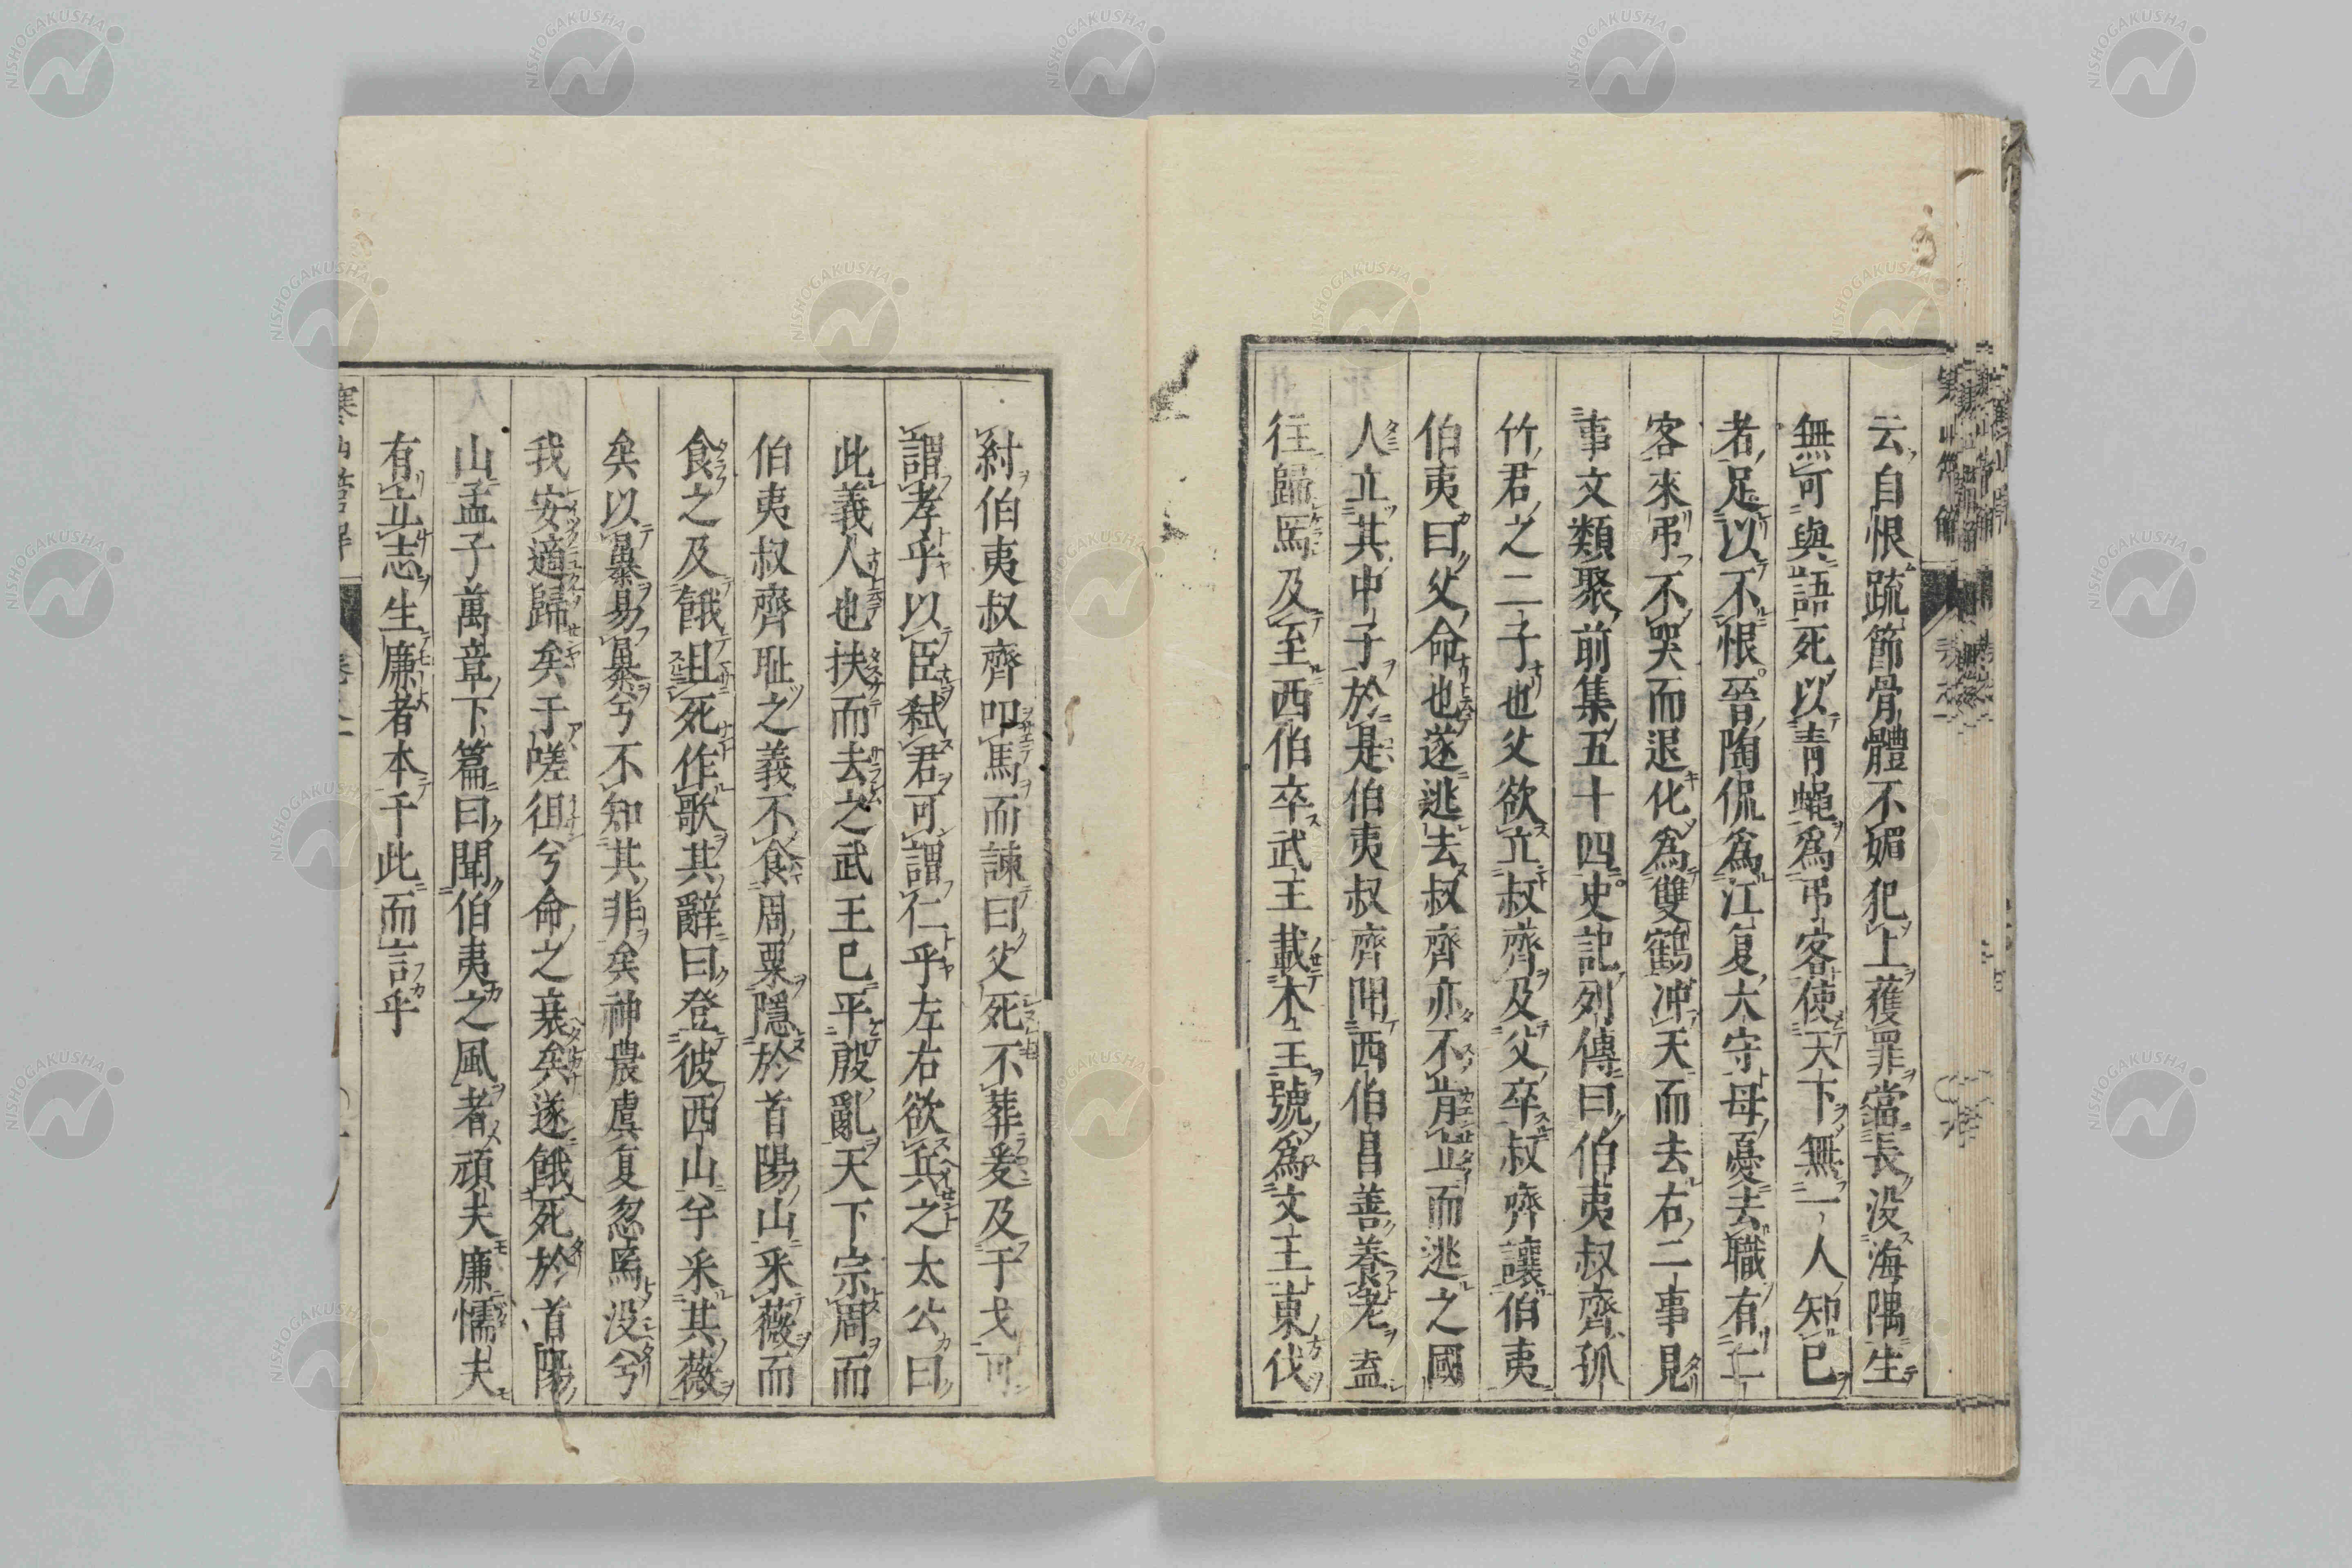 云自恨疏節骨體不媚犯上獲罪當長没海隅生
無可與語死以青蝿爲弔客使天下無一人知已
者足以不恨晉陶侃爲江夏大守母憂去職有二
客來弔不哭而退化爲雙鶴冲天而去右二事見
事文類聚前集五十四史記列傳曰伯夷叔齊孤
竹君之二子也父欲立叔齊及父卒叔齊讓伯夷
伯夷曰父命也遂逃去叔齊亦不肯立而逃之國
人立其中子於是伯夷叔齊聞西伯昌善養老盍
往歸焉及至西伯卒武王載木主號爲文王東伐
紂伯夷叔齊叩馬而諫曰父死不葬爰及干戈可
謂孝乎以臣弑君可謂仁乎左右欲兵之太公曰
此義人也扶而去之武王已平殷亂天下宗周而
伯夷叔齊耻之義不食周粟隱於首陽山采薇而
食之及餓且死作歌其辭曰登彼西山兮采其薇
矣以暴易暴兮不知其非矣神農虞夏忽焉没兮
我安適歸矣于嗟徂兮命之衰矣遂餓死於首陽
山孟子萬章下篇曰聞伯夷之風者頑夫廉懦夫
有立志生廉者本于此而言乎
NISHOGAKUSHA